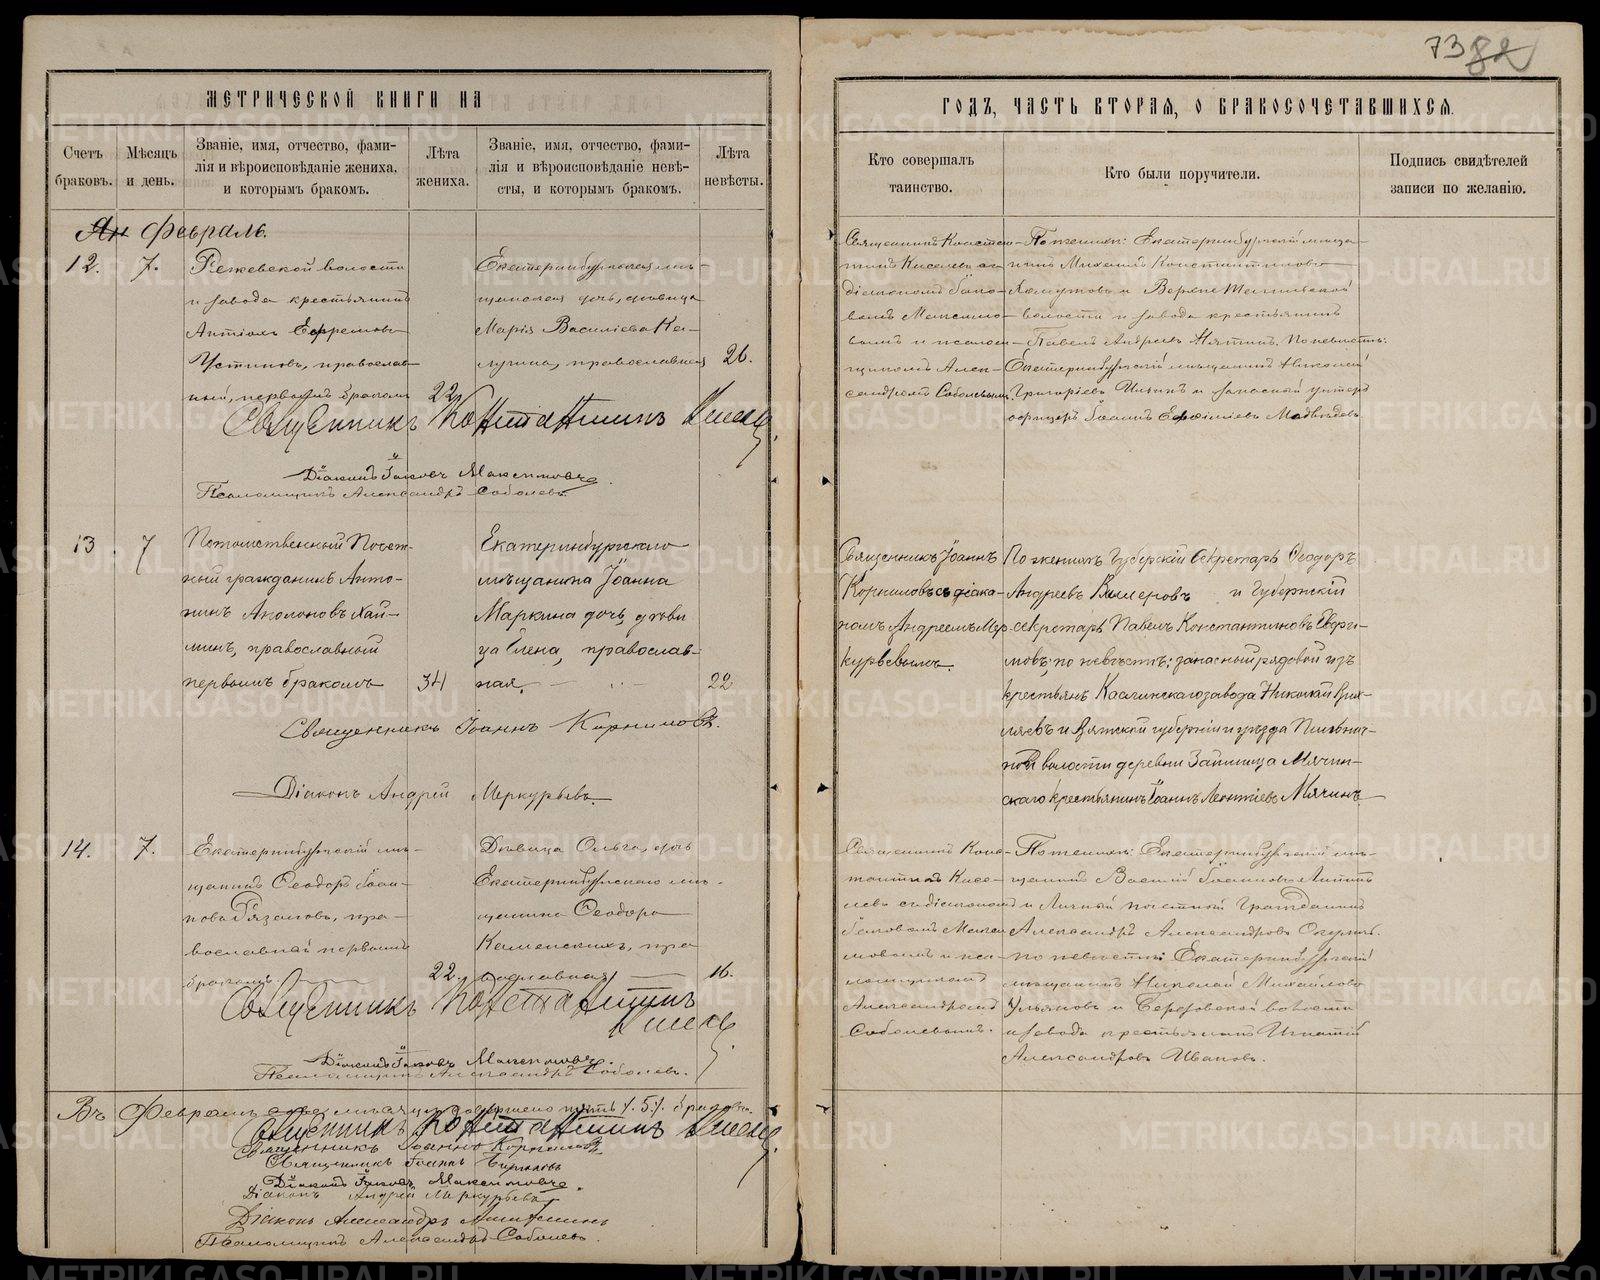 73 82
МЕТРИЧЕСКОЙ КНИГИ НА
ГОДЪ, ЧАСТЬ ВТОРАЯ, О БРАКОСОЧЕТАВШИХСЯ.
Счетъ
браковъ.
Мѣсяцъ
и день.
Званіе, имя, отчество, фами-
лія и вѣроисповѣданіе жениха,
и которымъ бракомъ.
Лѣта
жениха.
Званіе, имя, отчество, фами-
лія и вѣроисповѣданіе невѣ-
сты, и которымъ бракомъ.
Лѣта
невѣсты.
Кто совершалъ
таинство.
Кто были поручители.
Подпись свидѣтелей
записи по желанію.
Ян Февраль.
12.
7.
Режевской волости
и завода крестьянинъ
Антіохъ Ефремовъ
Устиновъ, православ-
ный, первымъ бракомъ
22
Екатеринбургская мѣ-
щанская дочь, дѣвица
Марія Василіева Ка-
лугина, православная
26.
Священникъ Констан-
тинъ Киселевъ съ
діакономъ Іако-
вомъ Максимо-
вымъ и псалом-
щикомъ Алек-
сандромъ Соболевымъ
По женихѣ: Екатеринбургскій мѣща-
нинъ Михаилъ Константиновъ
и Верхне
волости и завода крестьянинъ
Павелъ Андреевъ По невѣстѣ:
Екатеринбургскій мѣщанинъ Николай
Григоріевъ и запасный унтеръ
офицеръ Іоаннъ Евфиміевъ Медвѣдевъ
Священникъ Константинъ Киселевъ
Діаконъ Іаковъ Максимовъ
Псаломщикъ Александръ Соболевъ
13
7
Потомственный Почет-
ный гражданинъ Анто-
нинъ Аполоновъ Хай-
минъ, православный
первымъ бракомъ
34
Екатеринбургскаго
мѣщанина Іоанна
Маркина дочь, дѣви
ца Елена, православ-
ная.
22
Священникъ Іоаннъ
Корниловъ съ діако-
номъ Андреемъ Мер-
курьевымъ.
По женихѣ Губерскій Секретарь Ѳеодоръ
Андреевъ и Губернскій
секретарь Павелъ Константиновъ
мовъ; по невѣстѣ: запасный рядовой изъ
крестьянъ Каслинскаго завода Николай
ляевъ и Вятской губерніи и уѣзда
ной волости деревни Займища Мячин-
скаго крестьянинъ Іоаннъ Леонтіевъ Мячинъ
Священникъ Іоаннъ Корниловъ.
Діаконъ Андрей Меркурьевъ.
14.
7.
Екатеринбургскій мѣ-
щанинъ Ѳеодоръ Іоан-
новъ Рязановъ, пра-
вославный первымъ
бракомъ
22.
Дѣвица Ольга, дочь
Екатеринбургскаго мѣ-
щанина Ѳеодора
Каменскихъ, пра
вославная
16.
Священникъ Конс-
тантинъ Кисе-
левъ съ діакономъ
Іаковомъ Макси
мовымъ и пса-
ломщикомъ
Александромъ
Соболевымъ.
По женихѣ: Екатеринбургскій мѣ-
щанинъ Василій Іоанновъ
и Личный почетный Гражданинъ
Александръ Александровъ
по невѣстѣ: Екатеринбургскій
мѣщанинъ Николай Михайловъ
Ульяновъ и Березовской волости
и завода крестьянинъ Игнатій
Александровъ Ивановъ.
Священникъ Константинъ
Киселевъ
Діаконъ Іаковъ Максимовъ.
Псаломщикъ Александръ Соболевъ.
Въ Февралѣ мѣсяцѣ совершено пять /.5./. браковъ.
Священникъ Константинъ Киселевъ
Священникъ Іоаннъ Корниловъ
Священникъ Іоаннъ
Діаконъ Іаковъ Максимовъ
Діаконъ Андрей Меркурьевъ
Діаконъ Александръ
Псаломщикъ Александръ Соболевъ.
METRIKI.GASO-URAL.RU